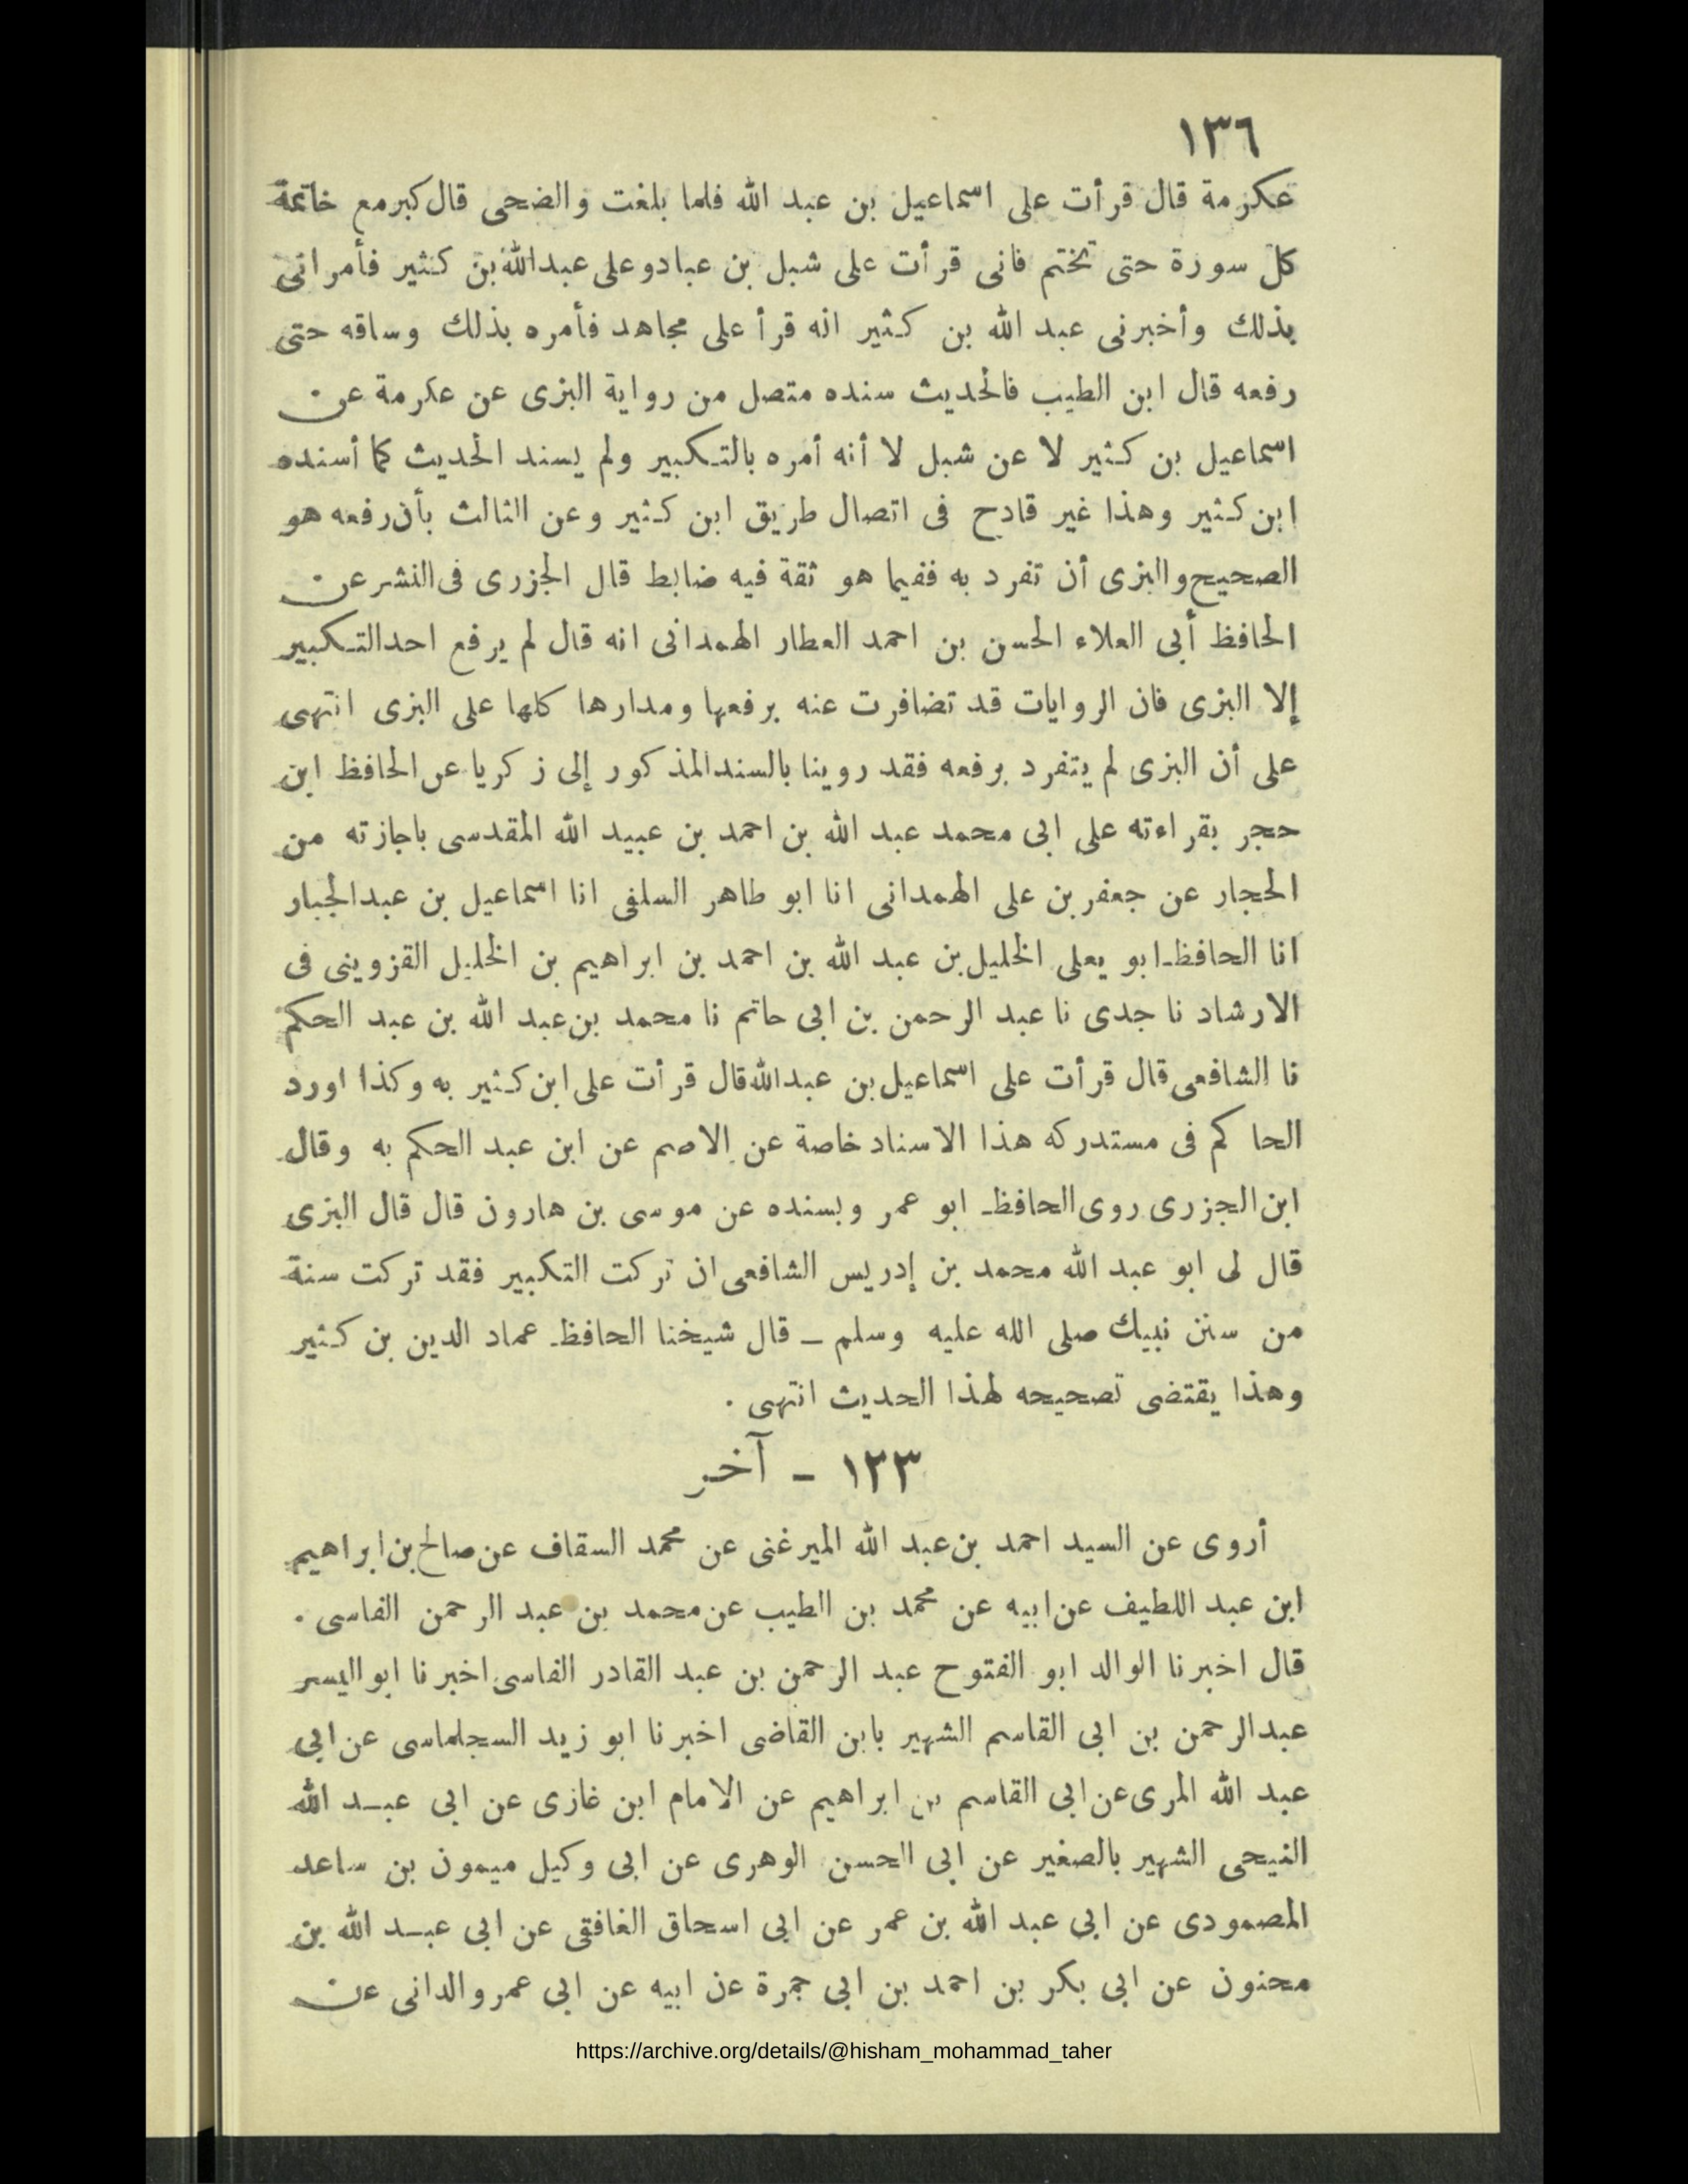 ١٣٦
عكرمة قال قرأت على اسماعيل بن عبد الله فلما بلغت والضحى قال كبر مع خاتمة
كل سورة حتى تختم فانى قرأت على شبل بن عبادو على عبدالله بن كثير فأمرانى
بذلك وأخبرنى عبد الله بن كثير انه قرأ على مجاهد فأمره بذلك وساقه حتى
رفعه قال ابن الطيب فالحديث سنده متصل من رواية البزى عن عكرمة عن
اسماعيل بن كثير لا عن شبل لا أنه أمره بالتكبير ولم يسند الحديث كما أسنده
ابن كثير وهذا غير قادح فى اتصال طريق ابن كثير وعن الثالث بأن رفعه هو
الصحيح والبزى أن تفرد به ففيما هو ثقة فيه ضابط قال الجزرى فى النشر عن
الحافظ أبى العلاء الحسن بن احمد العطار الهمدانى انه قال لم يرفع احد التكبير
إلا البزى فان الروايات قد تضافرت عنه برفعها ومدارها كلها على البزى انتهى
على أن البزى لم يتفرد برفعه فقد روينا بالسند المذكور إلى زكريا عن الحافظ ابن
حجر بقراءته على ابى محمد عبد الله بن احمد بن عبيد الله المقدسى باجازته من
الحجار عن جعفر بن على الهمدانى انا ابو طاهر السلفى انا اسماعيل بن عبدالجبار
انا الحافظ ابو يعلى الخليل بن عبد الله بن احمد بن ابراهيم بن الخليل القزوينى فى
الارشاد نا جدى نا عبد الرحمن بن ابى حاتم نا محمد بن عبد الله بن عبد الحكم
نا الشافعى قال قرأت على اسماعيل بن عبدالله قال قرأت على ابن كثير به وكذا اورد
الحاكم فى مستدركه هذا الاسناد خاصة عن الاصم عن ابن عبد الحكم به وقال
ابن الجزرى روى الحافظ ابو عمر وبسنده عن موسى بن هارون قال قال البزى
قال لى ابو عبد الله محمد بن إدريس الشافعى ان تركت التكبير فقد تركت سنة
من سنن نبيك صلى الله عليه وسلم ــ قال شيخنا الحافظ عماد الدين بن كثير
وهذا يقتضى تصحيحه لهذا الحديث انتهى .
١٢٣ - آخر
أروى عن السيد احمد بن عبد الله الميرغنى عن محمد السقاف عن صالح بن ابراهيم
ابن عبد اللطيف عن ابيه عن محمد بن الطيب عن محمد بن عبد الرحمن الفاسى .
قال اخبرنا الوالد ابو الفتوح عبد الرحمن بن عبد القادر الفاسى اخبرنا ابو اليسر
عبدالرحمن بن ابى القاسم الشهير بابن القاضى اخبرنا ابو زيد السجلماسى عن ابى
عبد الله المرى عن ابى القاسم بن ابراهيم عن الامام ابن غازى عن ابى عبد الله
النيحى الشهير بالصغير عن ابى الحسن الوهرى عن ابى وكيل ميمون بن ساعد
المصمودى عن ابى عبد الله بن عمر عن ابى اسحاق الغافقى عن ابى عبد الله بن
محنون عن ابى بكر بن احمد بن ابى جمرة عن ابيه عن ابى عمرو الدانى عن
https://archive.org/details/@hisham_mohammad_taher